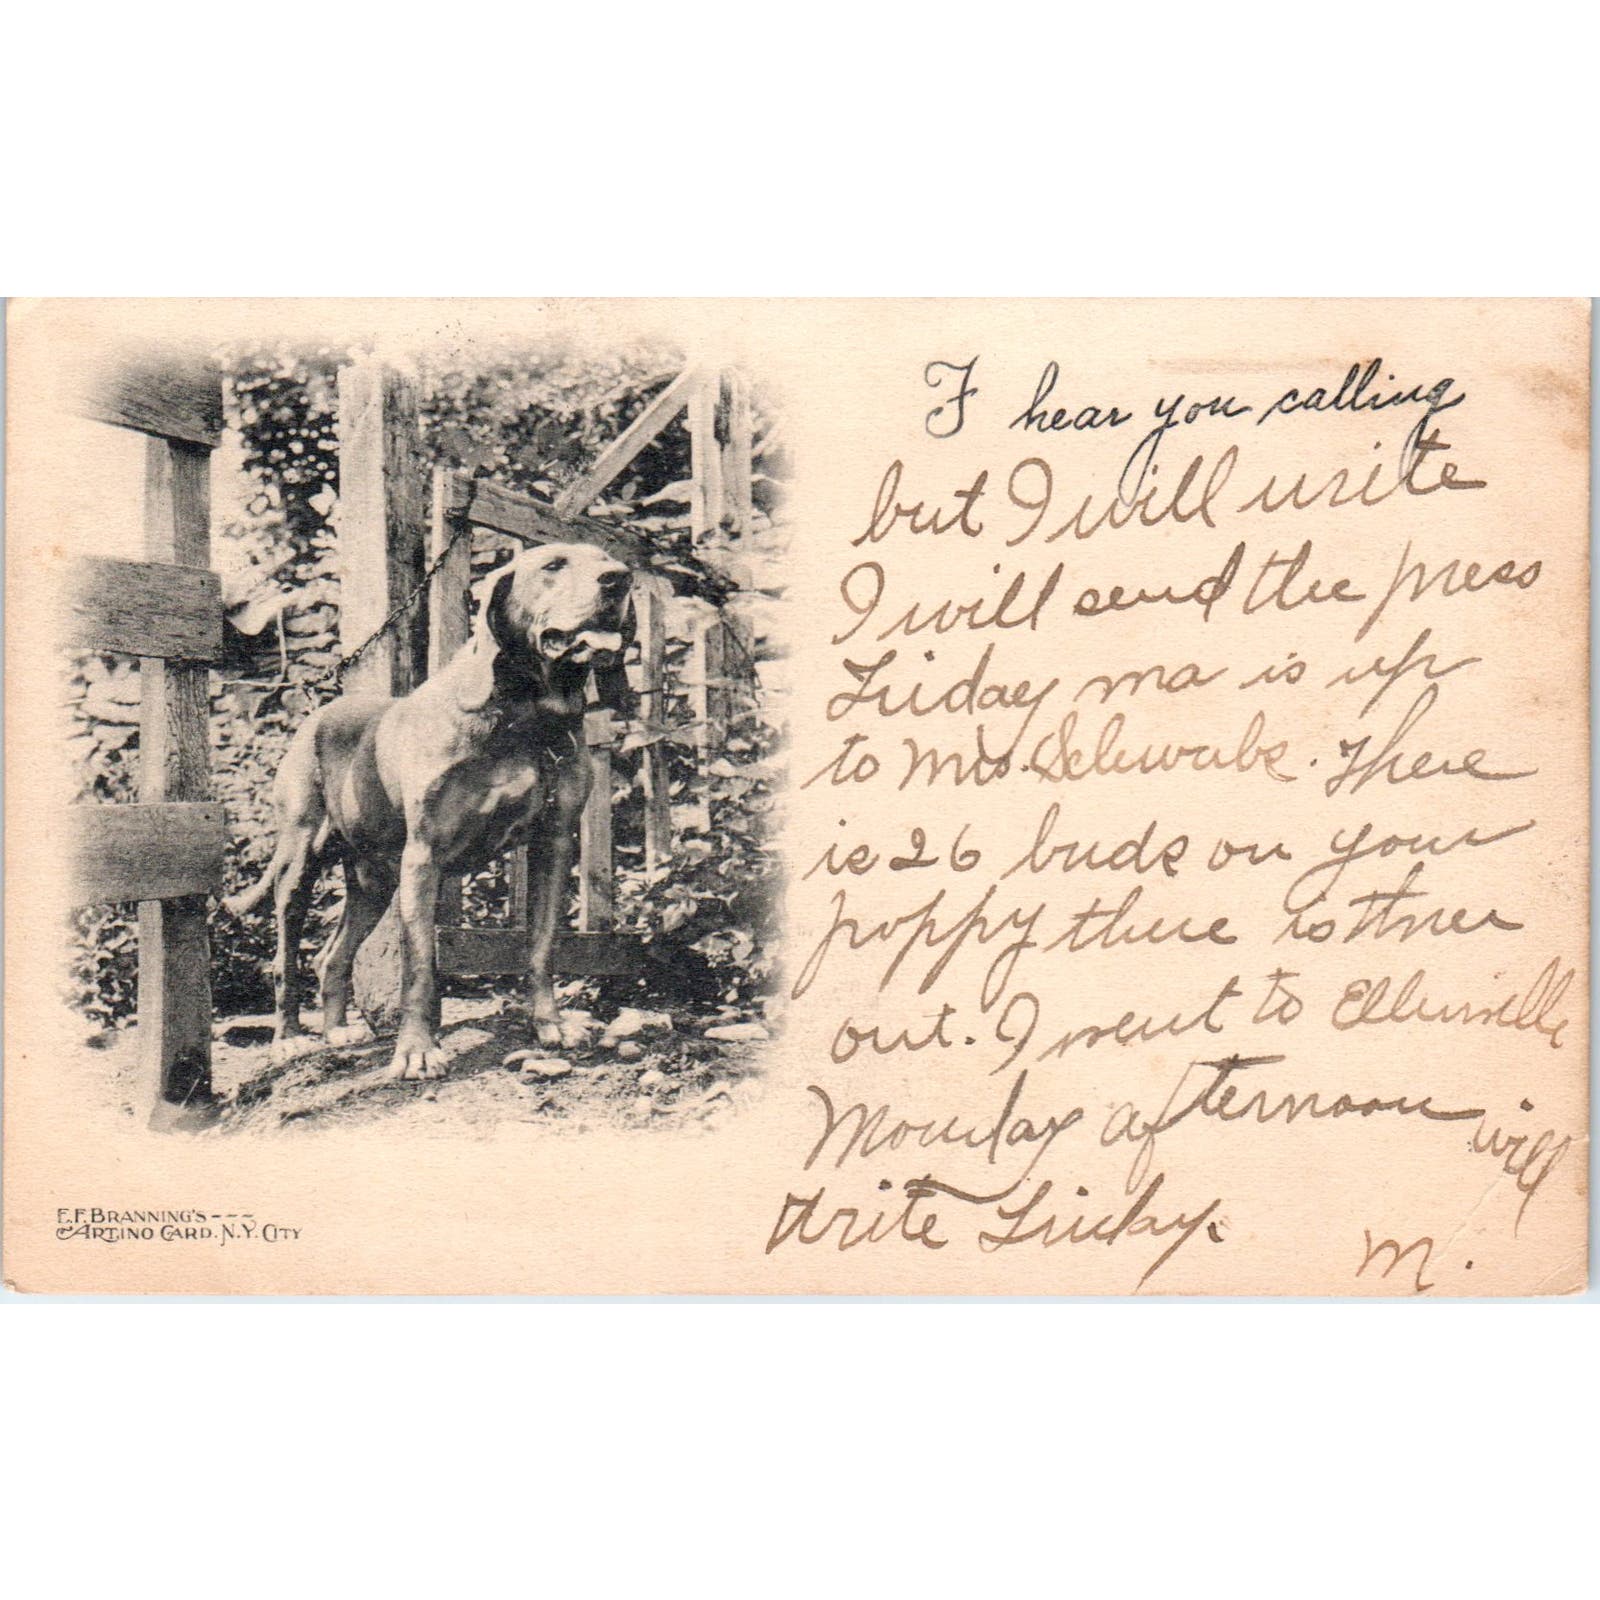 I hear you calling
but I will write
I will send the press
Friday ma is up
to Mrs. Schwabs. There
is 26 buds on your
poppy there is three
out. I went to Ellenville
Monday afternoon will
write Friday.
M.
E.F. BRANNING'S ---
ARTINO CARD. N.Y. CITY